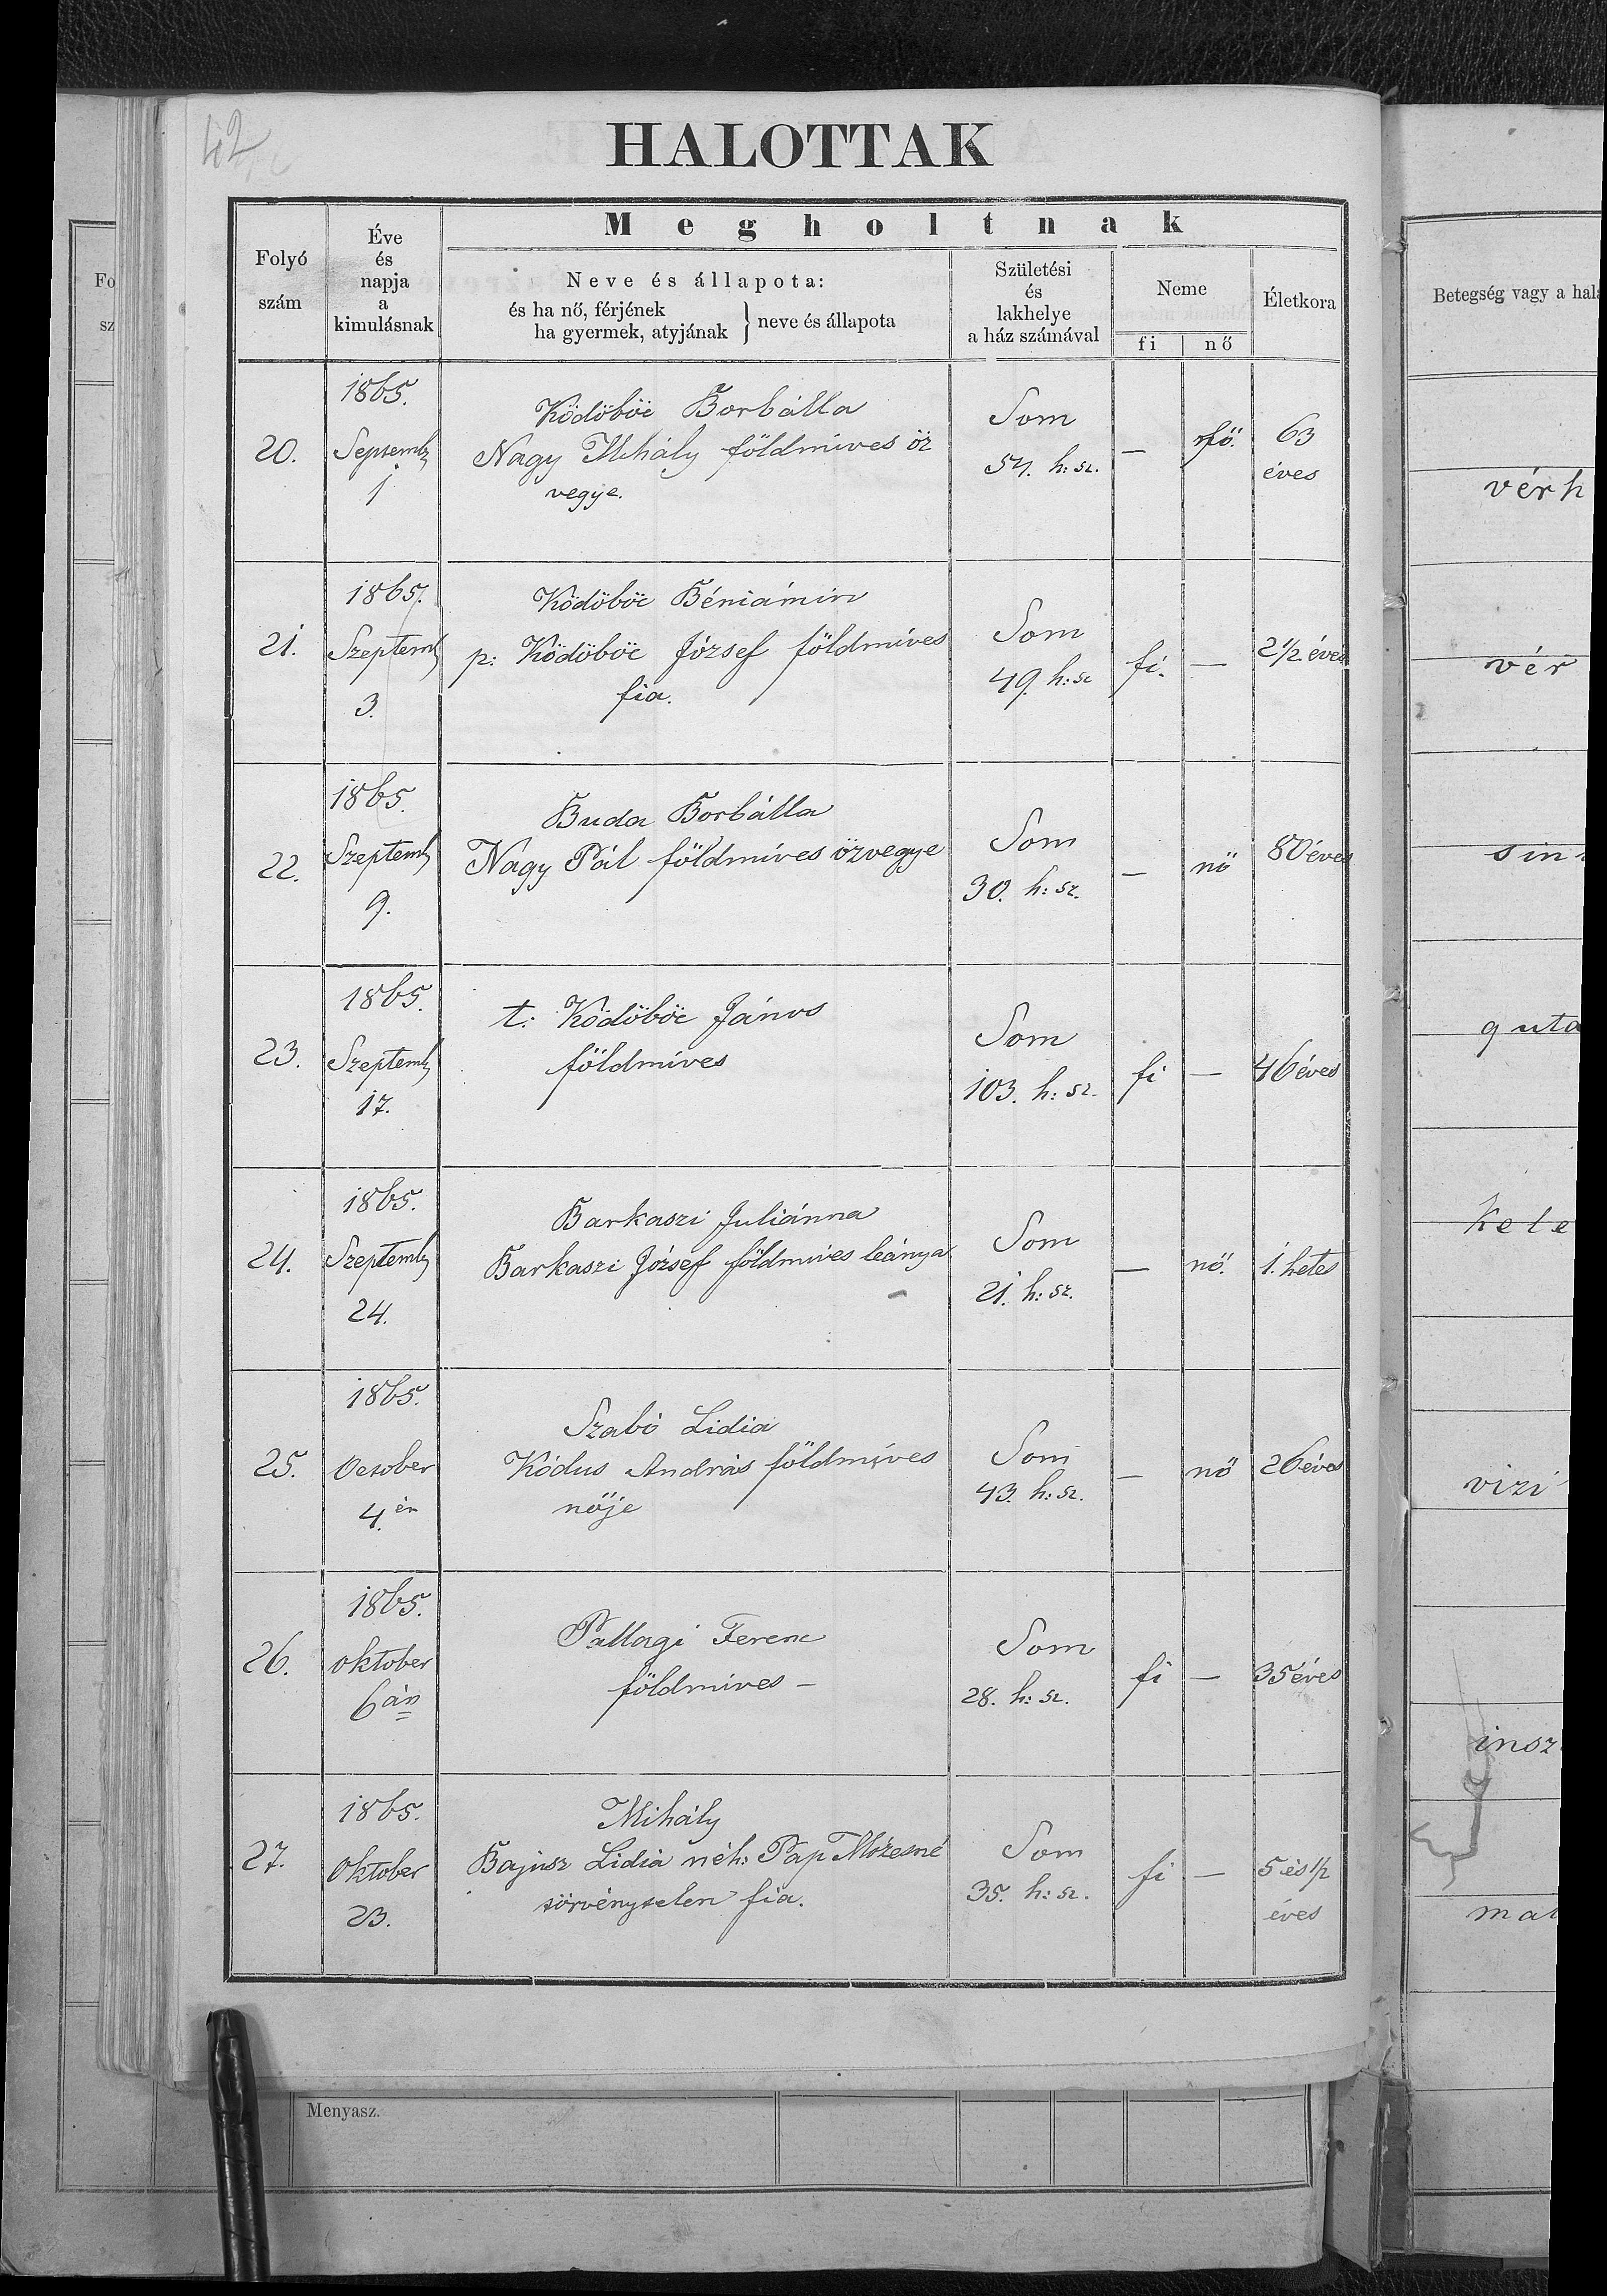 42
HALOTTAK
Megholtnak
Folyó
szám
Éve
és
napja
a
kimulásnak
Neve és állapota:
és ha nő, férjének
ha gyermek, atyjának } neve és állapota
Születési
és
lakhelye
a ház számával
Neme
fi
nő
Életkora
20.
1865.
Septemb
1
Ködöböc Borbálla
Nagy Mihály földmíves öz
vegye.
Som
54. h: sz.
—
nő.
63
éves
21.
1865.
Szeptemb
3.
Ködöböc Béniámin
p: Ködöböc József földmíves
fia.
Som
49. h: sz
fi.
—
2 1/2 éves
22.
1865.
Szeptemb
9.
Buda Borbálla
Nagy Pál földmíves özvegye
Som
30. h: sz.
—
nő
80 éves
23.
1865.
Szeptemb
17.
t: Ködöböc János
földmíves
Som
103. h: sz.
fi
—
46 éves
24.
1865.
Szeptemb
24.
Barkaszi Juliánna
Barkaszi József földmíves leánya
Som
21. h: sz.
—
nő.
1. hetes
25.
1865.
October
4.én
Szabó Lidia
Kódus András földmíves
nője
Som
43. h: sz.
—
nő
26 éves
26.
1865.
oktober
6án
Pallagi Ferenc
földmíves –
Som
28. h: sz.
fi
—
35 éves
27.
1865.
Oktober
23.
Mihály
Bajusz Lidia néh: Pap Mózesné
törvénytelen fia.
Som
35. h: sz.
fi
—
5 és 1/2
éves
Fo
sz
Betegség vagy a hal
vérh
vér
sin
guta
Kele
vizi
insz
Menyasz.